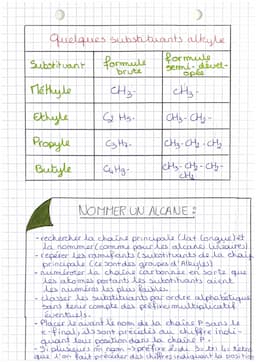 Quelques substituants alkyle
Substituant formule brute formule semi-dével-oppée
Méthyle CH3- CH3-
Ethyle C2H5- CH3-CH2-
Propyle C3H7- CH3-CH2-CH2
Butyle C4H9- CH3-CH2-CH2-CH2
NOMMER UN ALCANE :
- rechercher la chaîne principale (la + longue) et
la nommer (comme pour les alcanes linéaires)
- repérer les ramifications (substituants) de la chaîne
principale (ce sont des groupes d'Alkyles)
- numéroter la chaîne carbonée en sorte que
les atomes portants les substituants aient
les numéros les plus faibles.
- classer les substituants par ordre alphabétique
sans tenir compte des préfixes multiplicatifs
éventuels.
- Placer le avant le nom de la chaîne P sans le
e final, ils sont précédés du chiffre indi-
quant leur position dans la chaîne P.
- Si plusieurs m nom → préfixe
que l'on fait précéder des chiffres indiquant la position